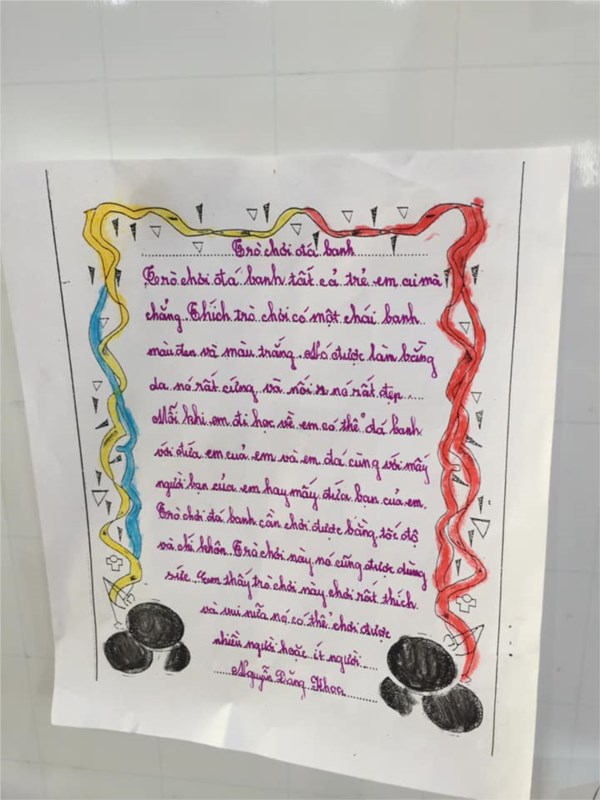 Trò chơi đá banh
Trò chơi đá banh tất cả trẻ em ai mà
chẳng Thích trò chơi có một chái banh
màu đen và màu trắng. Nó được làn bằng
da nó rất cứng và nồi nó rất đẹp
Mỗi khi em đi học về em có thể đá banh
với đứa em cuả em và em đá cùng với mấy
người bạn của em hay mấy đứa bạn của em.
Trò chơi đá banh cần chơi được bằng tốc độ
và chí khôn. Trò chơi này nó cũng được dùng
sức. Em thấy trò chơi này chơi rất thích
và vui nữa nó có thể chơi được
nhiều người hoặc ít người
Nguyễn Đăng Khoa